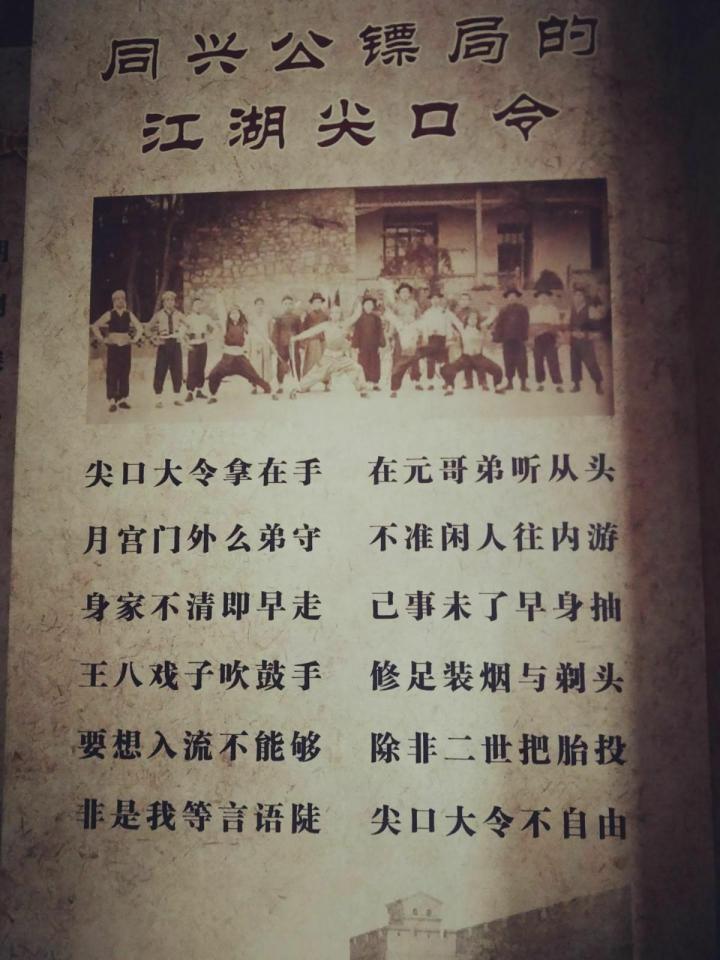 同兴公镖局的
江湖尖口令
尖口大令拿在手 在元哥弟听从头
月宫门外么弟守 不准闲人往内游
身家不清即早走 己事未了早身抽
王八戏子吹鼓手 修足装烟与剃头
要想入流不能够 除非二世把胎投
非是我等言语陡 尖口大令不自由